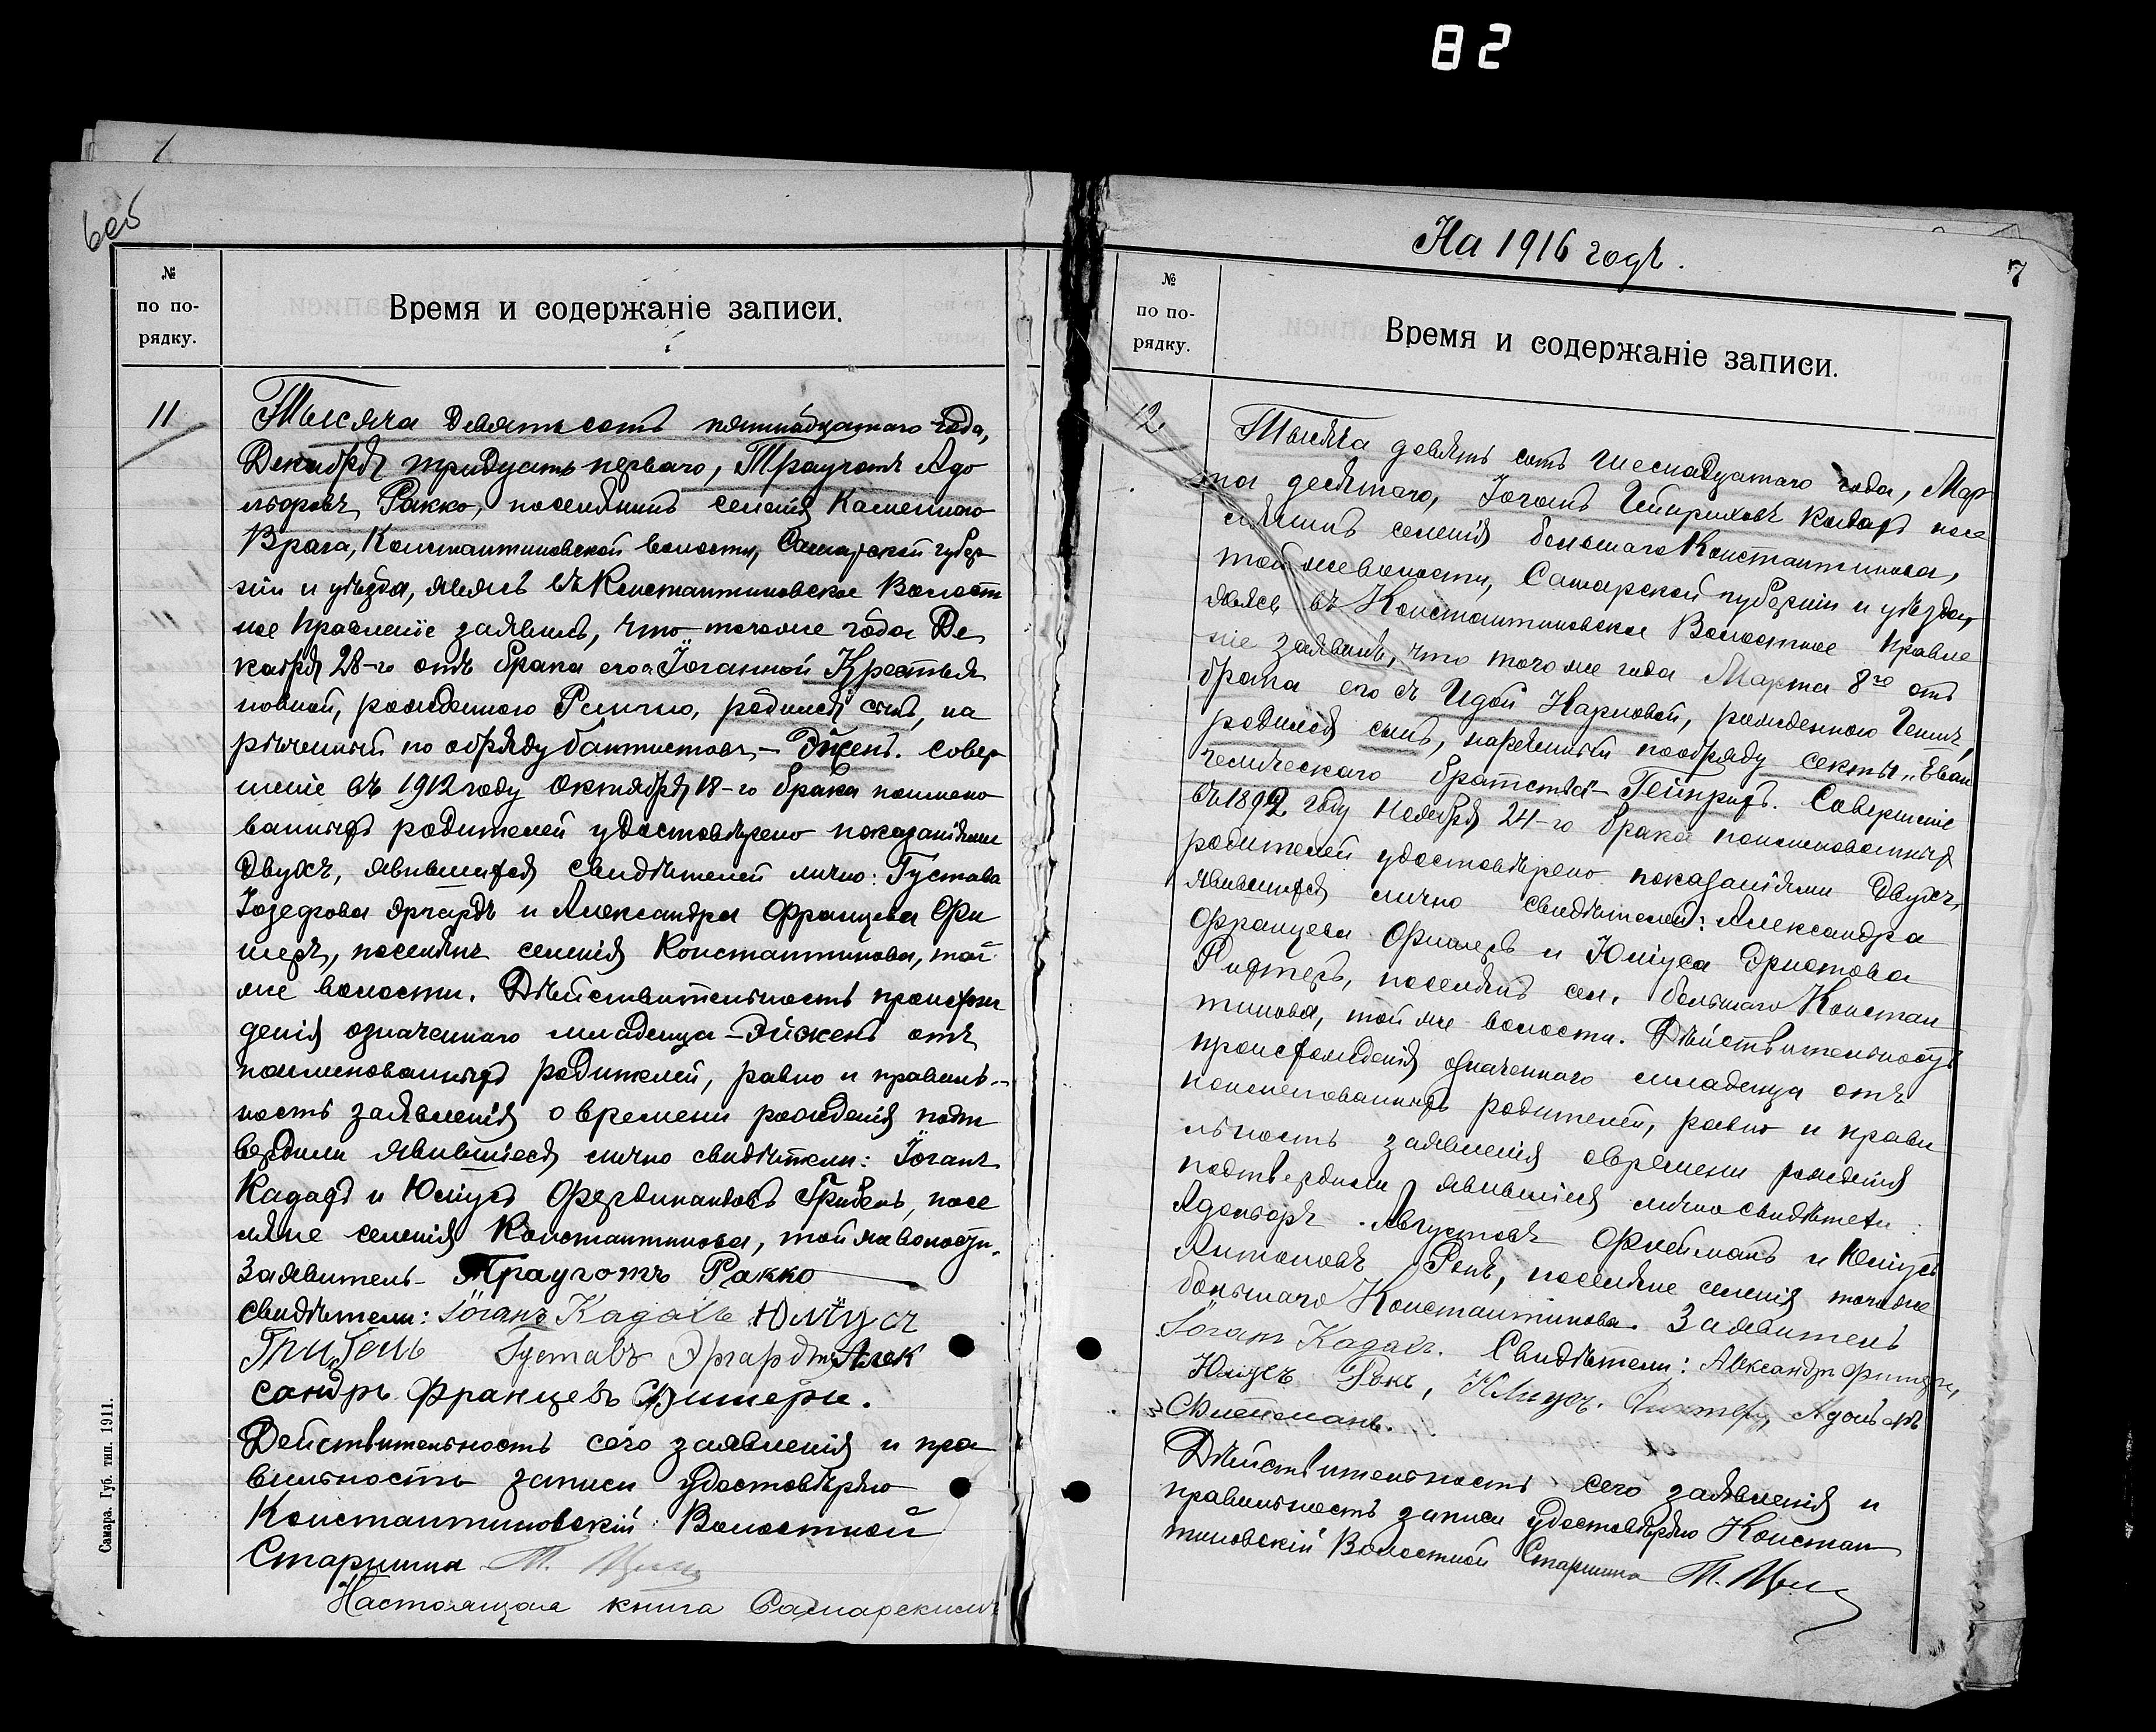 82
606
№
по по-
рядку.
Время и содержаніе записи.
11
Тысяча девять сотъ пятнадцатаго года,
Декабря тридцать перваго, Трауготъ Адо
льфовъ Ракко, поселянинъ селенія Каменнаго
Врага, Константиновской волости, Самарской губер
ніи и уѣзда, явясь въ Константиновское Волост
ное Правленіе заявилъ, что того же года Де
кабря 28-го отъ брака его Іоганной Крестья
новной, рожденною родился сынъ, на
рѣченный по обряду баптистовъ, – Эйженъ. Совер
шеніе въ 1912 году Октября 18-го брака поимено
ванныхъ родителей удостовѣрено показаніями
двухъ, явившихся свидѣтелей лично: Густава
Іозефова Эргардъ и Александра Францева Фи
шеръ, поселянъ селенія Константинова, той
же волости. Дѣйствительность происхож
денія означеннаго младенца – Эйженъ отъ
поименованныхъ родителей, равно и правиль-
ность заявленія о времени рожденія подт
вердили явившіеся лично свидѣтели: Іоганъ
Кадахъ и Юліусъ Фердинандовъ Грибель, посе
ляне селенія Константинова, той же волости.
Заявитель – Трауготъ Ракко
Свидѣтели: Іоганъ Кадахъ Юліусъ
Грибель Густавъ Эргардтъ Алек
сандръ Францевъ Фишеръ.
Действительность сего заявленія и пра
вильность записи удостовѣряю
Константиновскій Волостной
Старшина
Настоящая книга Самарскимъ
Самара. Губ. тип. 1911.
На 1916 годъ.
7
№
по по-
рядку.
Время и содержаніе записи.
12
Тысяча девять сотъ шеснадцатаго года, Мар
та десятаго, Іоганъ Гейнриховъ Кадахъ посе
лянинъ селенія большаго Константинова,
той же волости, Самарской губерніи и уѣзда,
явясь въ Константиновское Волостное Правле
ніе заявилъ, что того же года Марта 8го отъ
брака его съ Идой Карловой, рожденною
родился сынъ, нареченный по обряду секты „Еван
гелическаго братства" – Гейнрихъ. Совершеніе
въ 1892 году Ноября 24-го брака поименованныхъ
родителей удостовѣрено показаніями двухъ,
явившихся лично свидѣтелей: Александра
Францева Фишеръ и Юліуса Эрнстова
Рихтеръ, поселянъ сел. большаго Констан
тинова, той же волости. Дѣйствительность
происхожденія означеннаго младенца отъ
поименованныхъ родителей, равно и прави
льность заявленія о времени рожденія
подтвердили явившіеся лично свидѣтели
Адольфъ Августовъ Флейманъ и Юліусъ
Антоновъ поселяне селенія тогоже
большаго Константинова. Заявитель
Іоганъ Кадахъ. Свидѣтели: Александръ Фишеръ,
Юліусъ Юлиусъ. Рихтеръ, Адольфъ
Флейманъ.
Дѣйствительность сего заявленія и
правильность записи удостовѣряю Констан
тиновскій Волостной Старшина